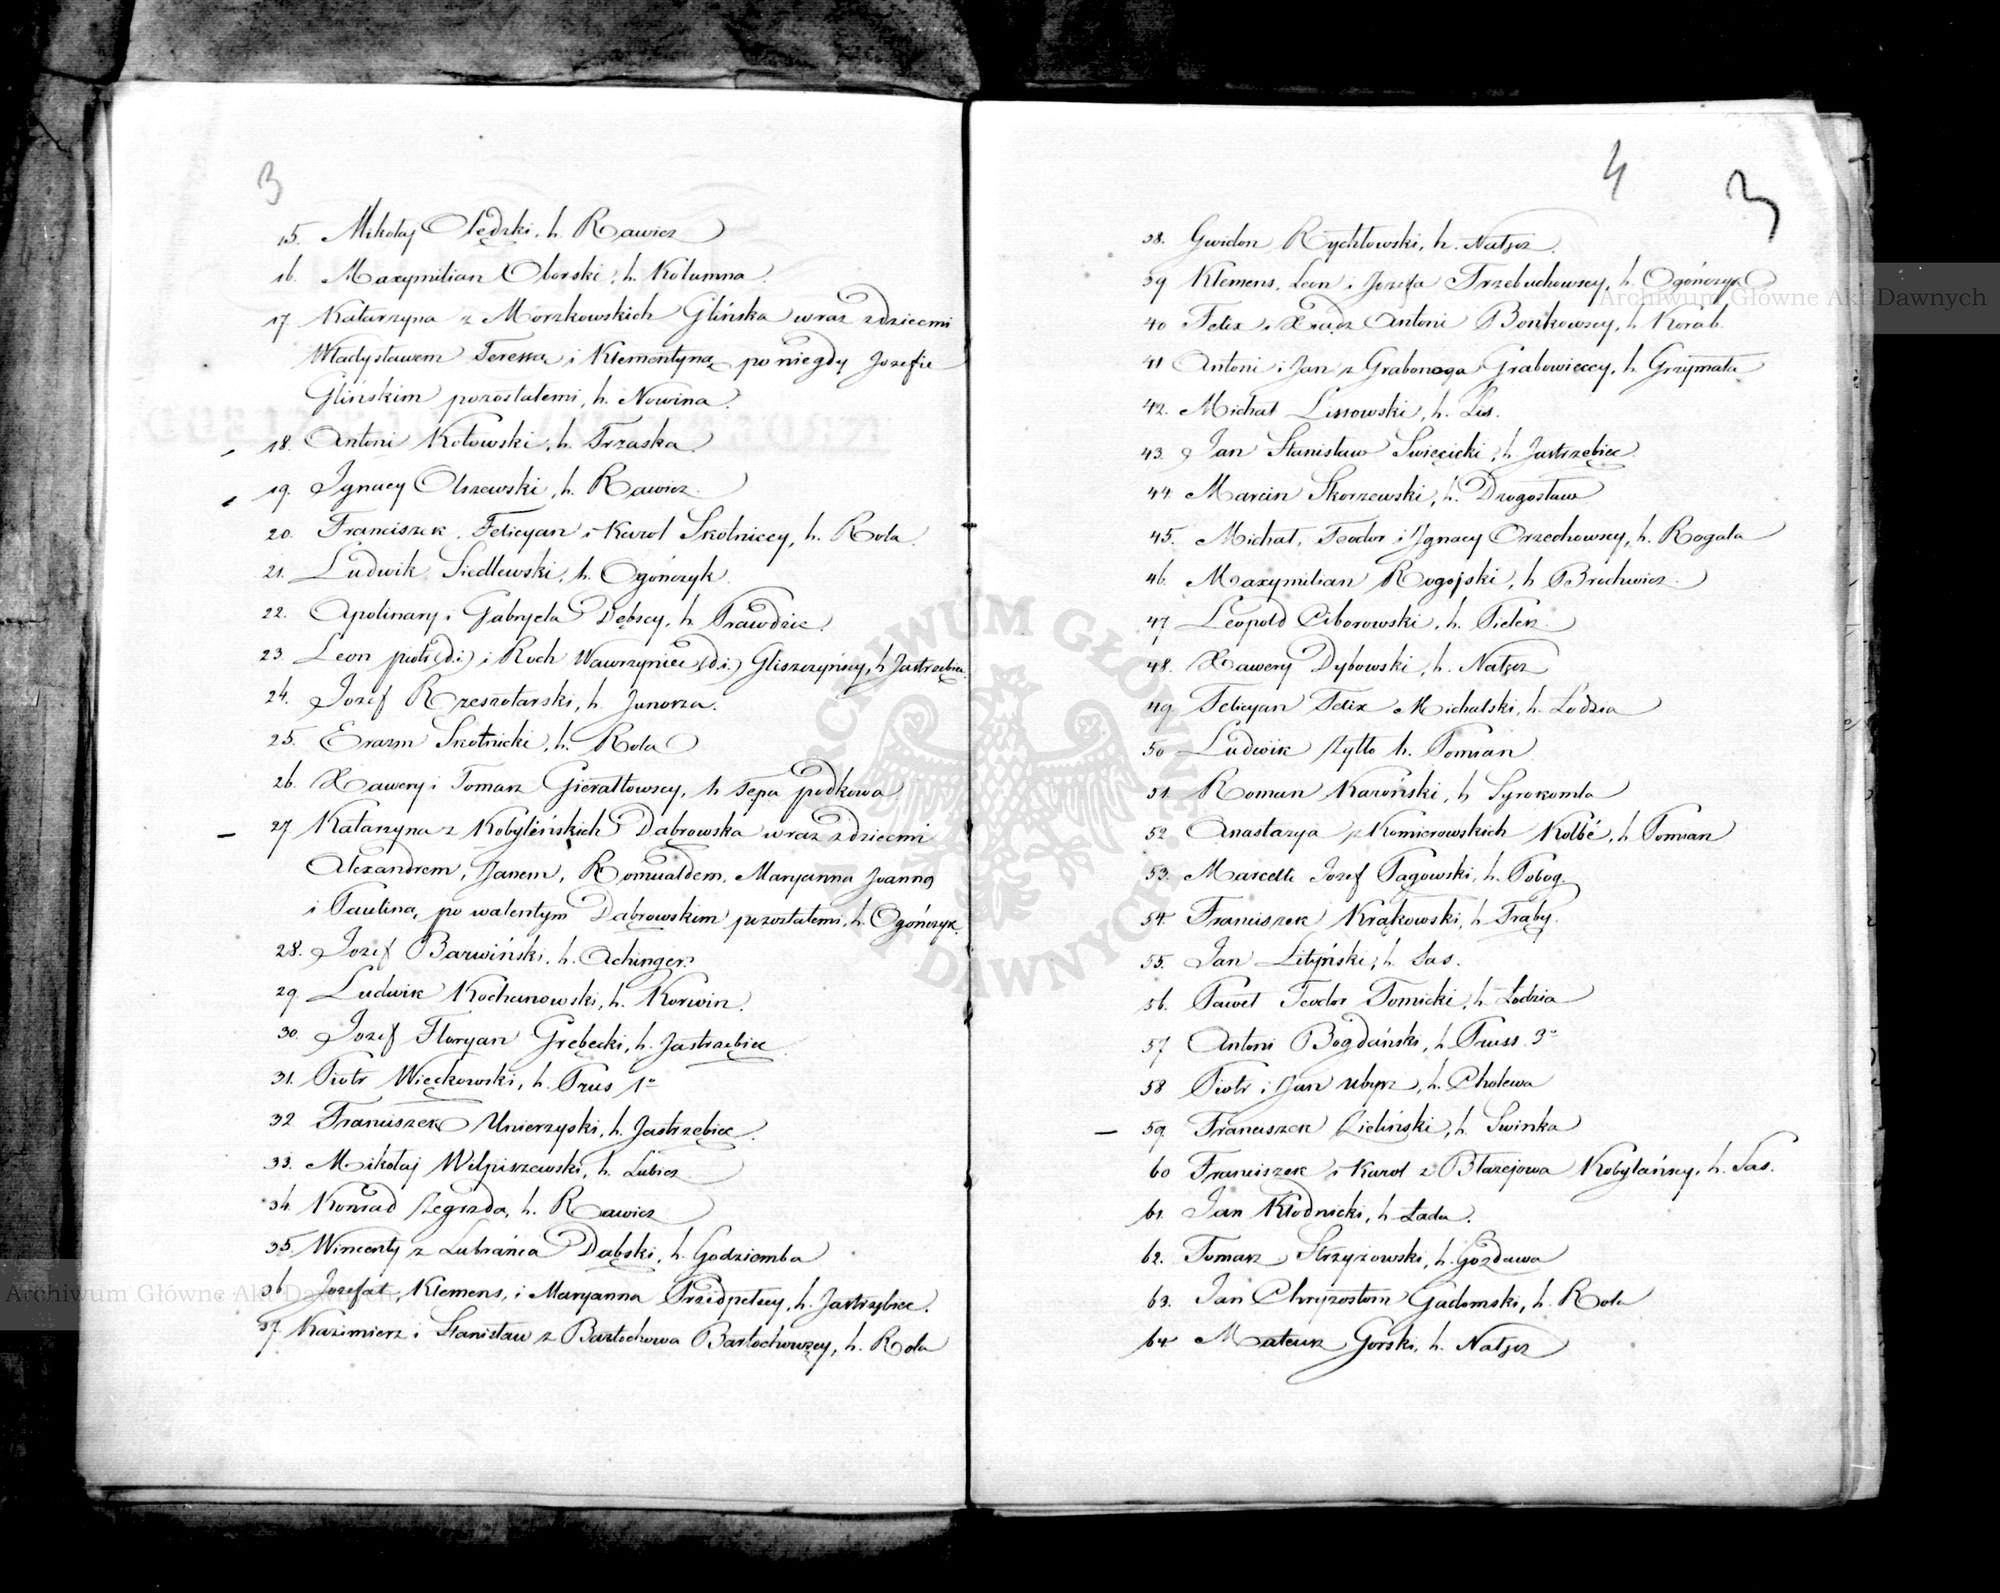 3
15. Mikołaj Olędzki, h. Rawicz
16. Maxymilian Oborski, h. Kolumna.
17. Katarzyna z Morzkowskich Glińska wraz z dziecmi
Władysławem Teressą i Klementyną po niegdy Jozefie
Glińskim pozostałemi, h. Nowina.
18. Antoni Kotowski, h. Trzaska.
19. Ignacy Olszewski, h. Rawicz.
20. Franciszek, Felicyan i Karol Skolniccy, h. Rola
21. Ludwik Siedlewski, h. Ogończyk.
22. Apolinary i Gabryela Dębscy, h. Prawdzic.
23. Leon piotr (d.i) i Roch Wawrzyniec (d.i.) Gliszczyńscy, h Jastrzebiec
24. Jozef Rzeszotarski, h. Junorza.
25. Erazm Skotnicki, h. Rola
26. Xawery i Tomasz Gierałtowscy, h Tępa podkowa
27 Katarzyna z Kobylińskich Dąbrowska wraz z dziecmi
Alexandrem, Janem, Romualdem, Maryanna Joanną
i Pauliną, po walentym Dąbrowskim pozostałemi, h. Ogończyk.
28. Jozef Barwiński, h. Achinger.
29. Ludwik Kochanowski, h. Korwin.
30. Jozef Floryan Grębecki, h. Jastrzębiec
31. Piotr Więckowski, h. Prus 1o
32 Franciszek Unierzyski, h. Jastrzębiec.
33. Mikołaj Wilpiszewski, h. Lubicz.
34. Konrad Zegrzda, h. Rawicz
35. Wincenty z Lubrańca Dąbski, h. Godziemba
36 Jozefat, Klemens, i Maryanna Przedpełscy, h. Jastrzębiec.
37. Kazimierz i Stanisław z Bartochowa Bartochowscy, h. Rola
4 3
38. Gwidon Rychłowski, h. Nałęcz.
39 Klemens, Leon i Jozefa Trzebuchowscy, h. Ogończyk
40 Felix i Xiądz Antoni Bońkowscy, h Korab.
41 Antoni i Jan z Grabonoga Grabowieccy, h. Grzymała
42. Michał Lissowski, h. Lis.
43. Jan Stanisław Swięcicki, h. Jastrzębiec.
44. Marcin Skorzewski, h. Drogosław
45. Michał, Teodor i Ignacy Orzechowscy, h. Rogala
46. Maxymilian Rogojski, h Brochwicz.
47 Leopold Ciborowski, h. Pielesz.
48. Xawery Dybowski, h. Nałęcz
49 Felicyan Felix Michalski, h. Łodzia
50 Ludwik Zytło h. Pomian
51 Roman Karoński, h Syrokomla
52 Anastazya z Komierowskich Kolbé, h Pomian
53. Marcelli Jozef Pągowski, h. Pobog.
54. Franciszek Krąkowski, h. Trąby.
55. Jan Lityński, h. Sas.
56. Paweł Teodor Tomicki, h Łodzia
57 Antoni Bogdański, h Pruss 3o
58 Piotr i Jan Ubysz, h. Cholewa
59. Franciszek Zieliński, h. Swinka
60 Franciszek i Karol z Błażejowa Kobylańscy, h. Sas.
61. Jan Kłodnicki, h Łada.
62. Tomasz Strzyżowski, h. Gozdawa
63. Jan Chryzostom Gadomski, h. Rola
64 Mateusz Gorski, h. Nałęcz
ARCHIWUM GŁÓWNE AKT DAWNYCH
Archiwum Główne Akt Dawnych
Archiwum Główne Akt Dawnych